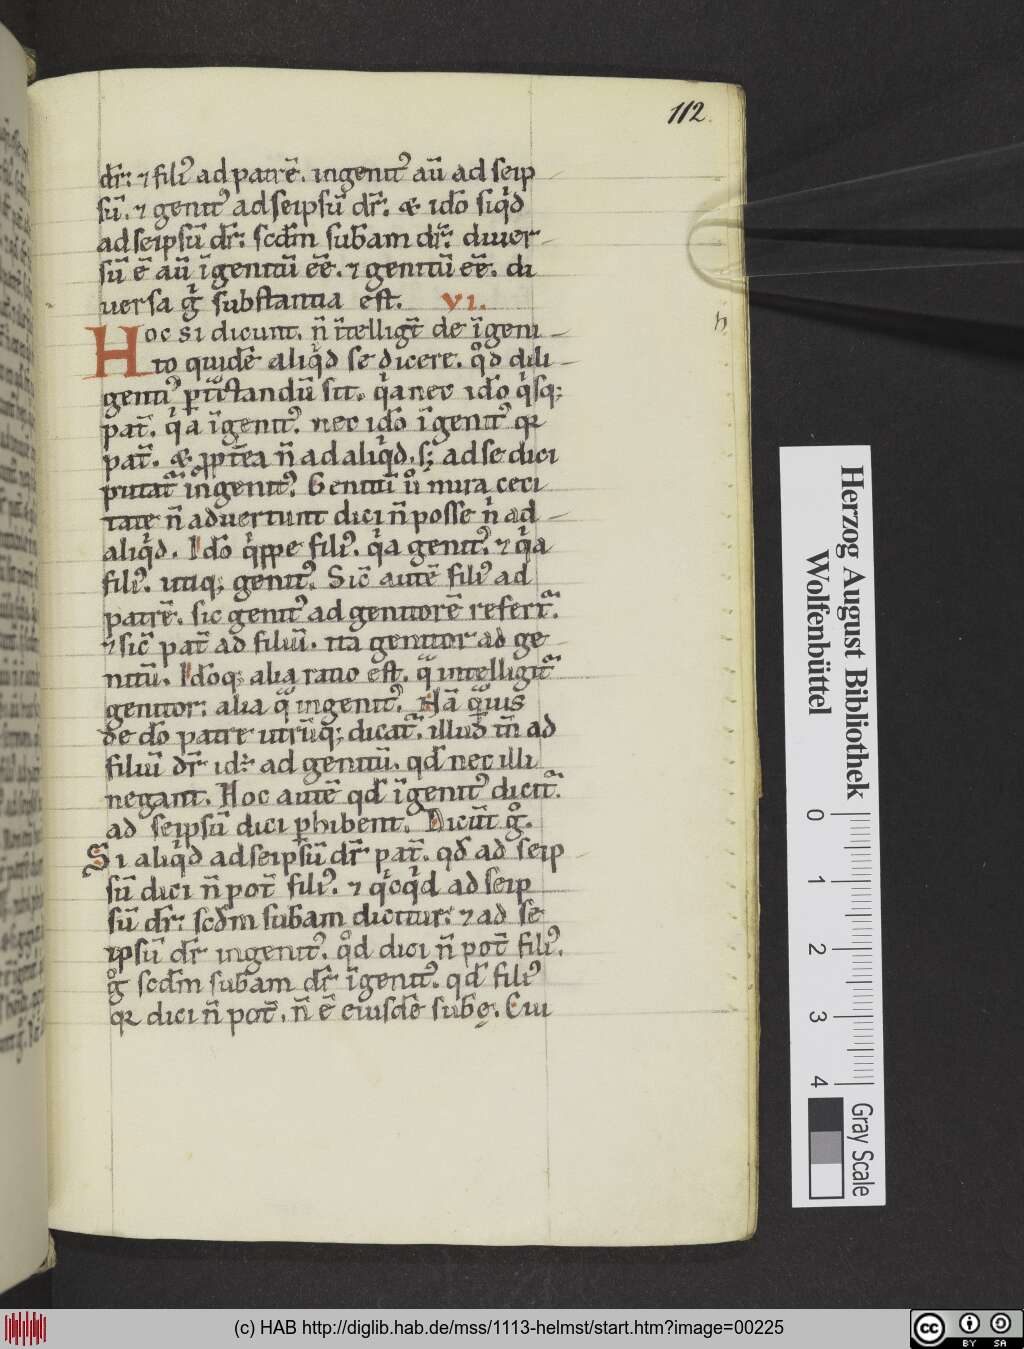 112.
dr̄: ⁊ fili᷒ ad patrē. ingenit᷒ aū ad seip
sū. ⁊ genit᷒ ad seipsū dr̄. & ido̅ siqͥd
ad seipsū dr̄: scd̄m sub̄am dr̄: diuer
sū ē aū īgenitū eē. ⁊ genitū eē. di
uersa gͥ substantia est. VI.
Hoc si dicunt. n̄ ītelligt̄ de īgeni
to quidē aliqͥd se dicere. qͦd dili
genti᷒ ꝑt̄ctandū sit. qͥa nec ido̅ qͥsq;
pat̄. qͥa īgenit᷒. nec ido̅ īgenit᷒ qꝛ
pat̄. & ꝓpt̄ea n̄ ad aliqͥd. s; ad se dici
putat᷑ ingenit᷒. Genitū ū mira ceci
tate n̄ aduertunt dici n̄ posse n̄ ad
aliqͥd. Ido̅ qͥppe fili᷒. qͥa genit᷒. ⁊ qͥa
fili᷒. utiq; genit᷒. Sic̄ autē fili᷒ ad
patrē. sic genit᷒ ad genitorē refert᷑.
⁊ sic̄ pat̄ ad filiū. ita genitor ad ge
nitū. Ido̅q; alia ratio est. qͣ intelligit᷑
genitor: alia qͣ ingenit᷒. Nā qͣuis
de do̅ patre utrūq; dicat᷑. illud tn̄ ad
filiū dr̄ id: ad genitū. qd̄ nec illi
negant. Hoc autē qd̄ īgenit᷒ dicit᷑.
ad seipsū dici ꝑhibent. Dicūt gͦ.
Si aliqͥd ad seipsū dr̄ pat̄. qd̄ ad seip
sū dici n̄ pot̄ fili᷒. ⁊ qͥcqͥd ad seip
sū dr̄: scd̄m sub̄am dicitur: ⁊ ad se
ipsū dr̄ ingenit᷒. qͦd dici n̄ pot̄ fili᷒.
gͦ scd̄m sub̄am dr̄ īgenit᷒. qd̄ fili᷒
qꝛ dici n̄ pot̄. n̄ ē eiusdē sub̄ę. Eui
Herzog August Bibliothek
Wolfenbüttel
0 1 2 3 4
Gray Scale
(c) HAB http://diglib.hab.de/mss/1113-helmst/start.htm?image=00225
cc BY SA